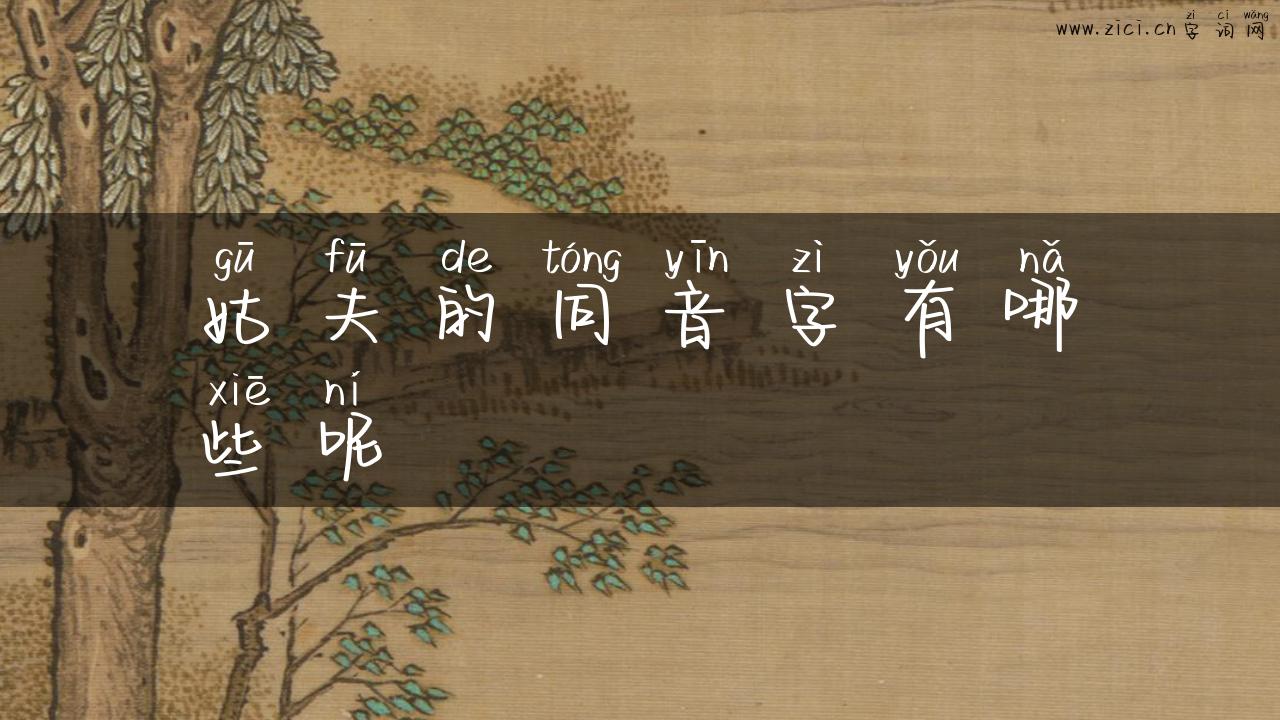 zì cí wǎng
www.zici.cn 字词网
gū fū de tóng yīn zì yǒu nǎ
姑夫的同音字有哪
xiē ní
些呢